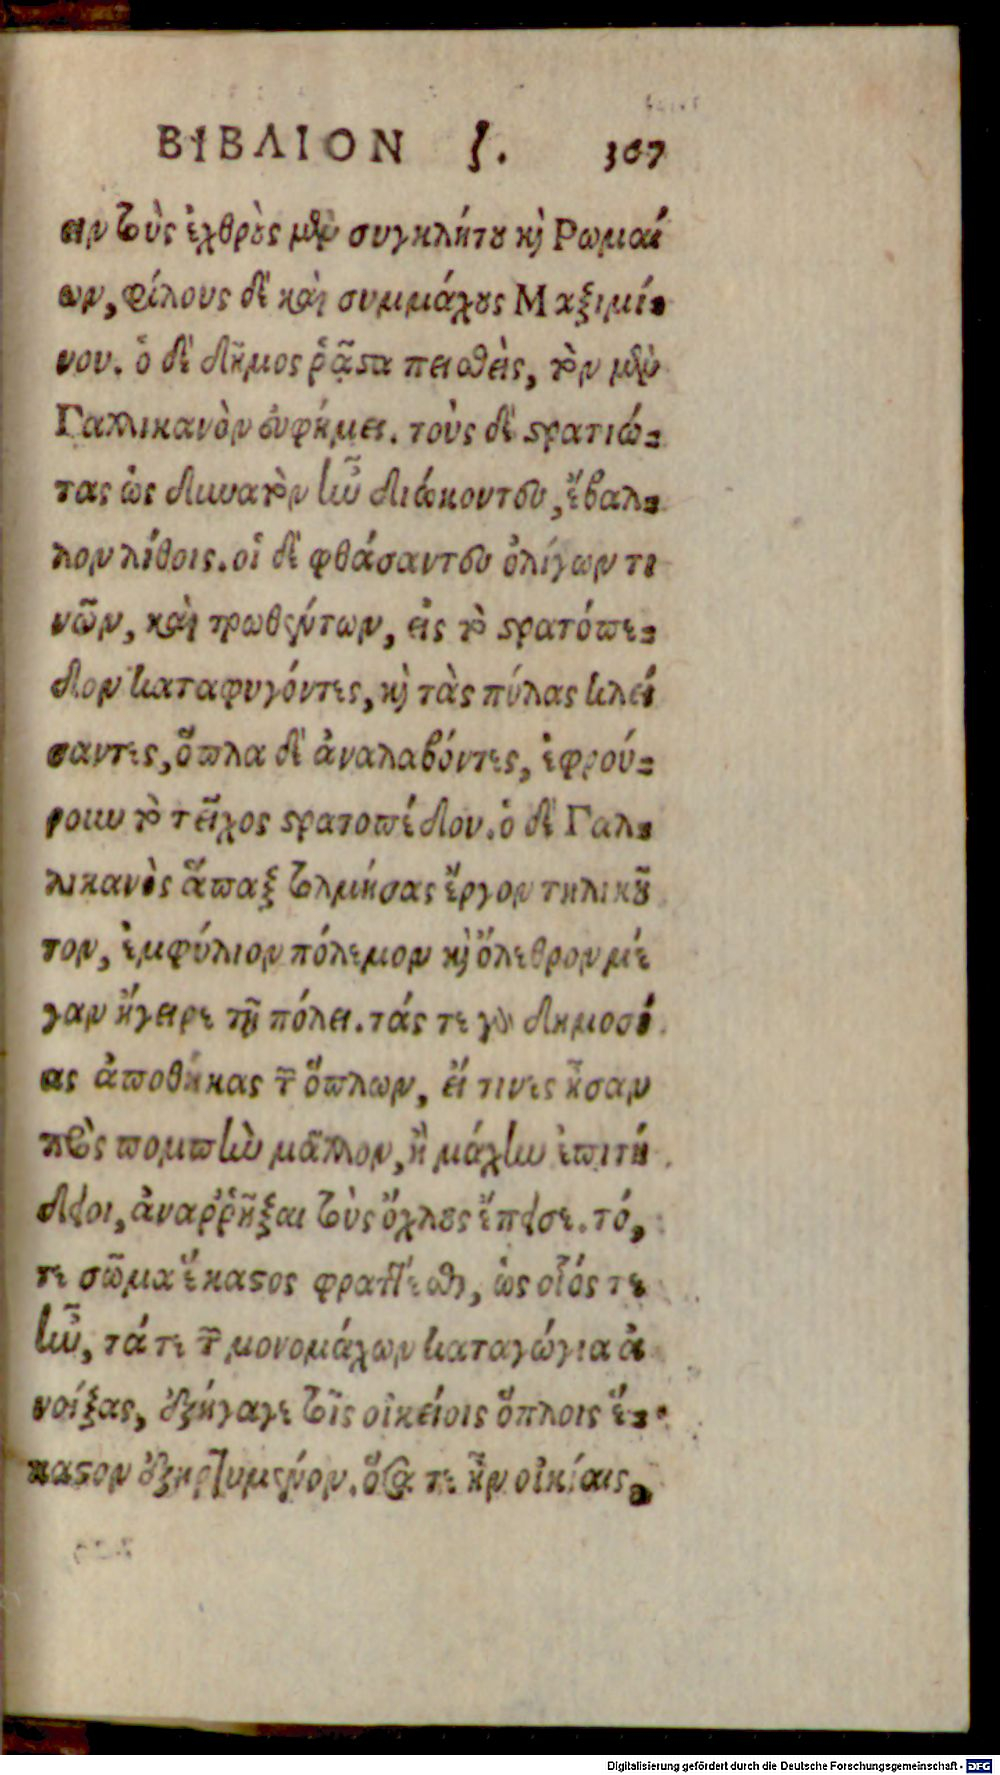 ΒΙΒΛΙΟΝ ζ. 367
ειν τοὺς ἐχθροὺς μὲν συγκλήτου καὶ Ρωμαί
ων, φίλους δὲ καὶ συμμάχους Μαξιμί-
νου. ὁ δὲ δῆμος ῥᾷστα πεισθεὶς, τὸν μὲν
Γαλλικανὸν εὐφήμει. τοὺς δὲ στρατιώ-
τας ὡς δυνατὸν ἦν διώκοντες, ἔβαλ-
λον λίθοις. οἱ δὲ φθάσαντες ὀλίγων τι
νῶν, καὶ τρωθέντων, εἰς τὸ στρατόπε-
δον καταφυγόντες, καὶ τὰς πύλας κλεί
σαντες, ὅπλα δὲ ἀναλαβόντες, ἐφρού-
ρουν τὸ τεῖχος στρατοπέδου. ὁ δὲ Γαλ-
λικανὸς ἅπαξ τολμήσας ἔργον τηλικοῦ
τον, ἐμφύλιον πόλεμον καὶ ὄλεθρον μέ
γαν ἤγειρε τῇ πόλει. τάς τε γὰρ δημοσί
ας ἀποθήκας τῶν ὅπλων, εἴ τινες ἦσαν
πρὸς πομπὴν μᾶλλον, ἢ μάχην ἐπιτή
δειοι, ἀναῤῥῆξαι τοὺς ὄχλους ἔπεισε. τό,
τε σῶμα ἕκαστος φράττεσθαι, ὡς οἷός τε
ἦν, τά τε τῶν μονομάχων καταγώγια ἀ
νοίξας, ἐξήγαγε τοῖς οἰκείοις ὅπλοις ἕ-
καστον ἐξηρτυμένον. ὅσα τε ἦν οἰκίαις,
Digitalisierung gefördert durch die Deutsche Forschungsgemeinschaft - DFG